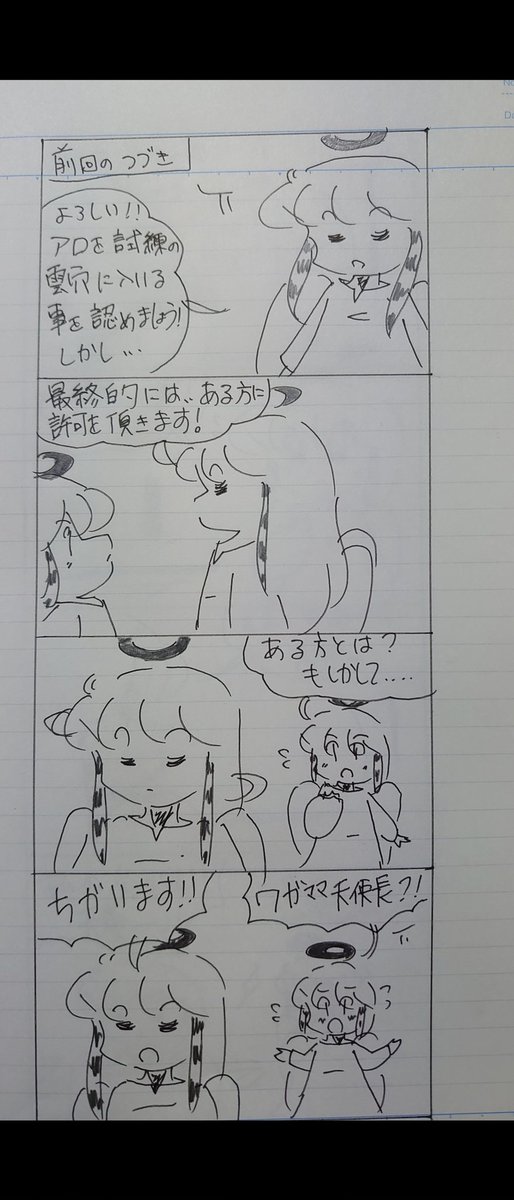 前回のつづき
よろしい!!
アロを試練の
雲穴に入いる
事を認めましょう!
しかし...
最終的には、ある方に
許可を頂きます!
ある方とは?
もしかして....
ワガママ天使長?!
ちがいます!!